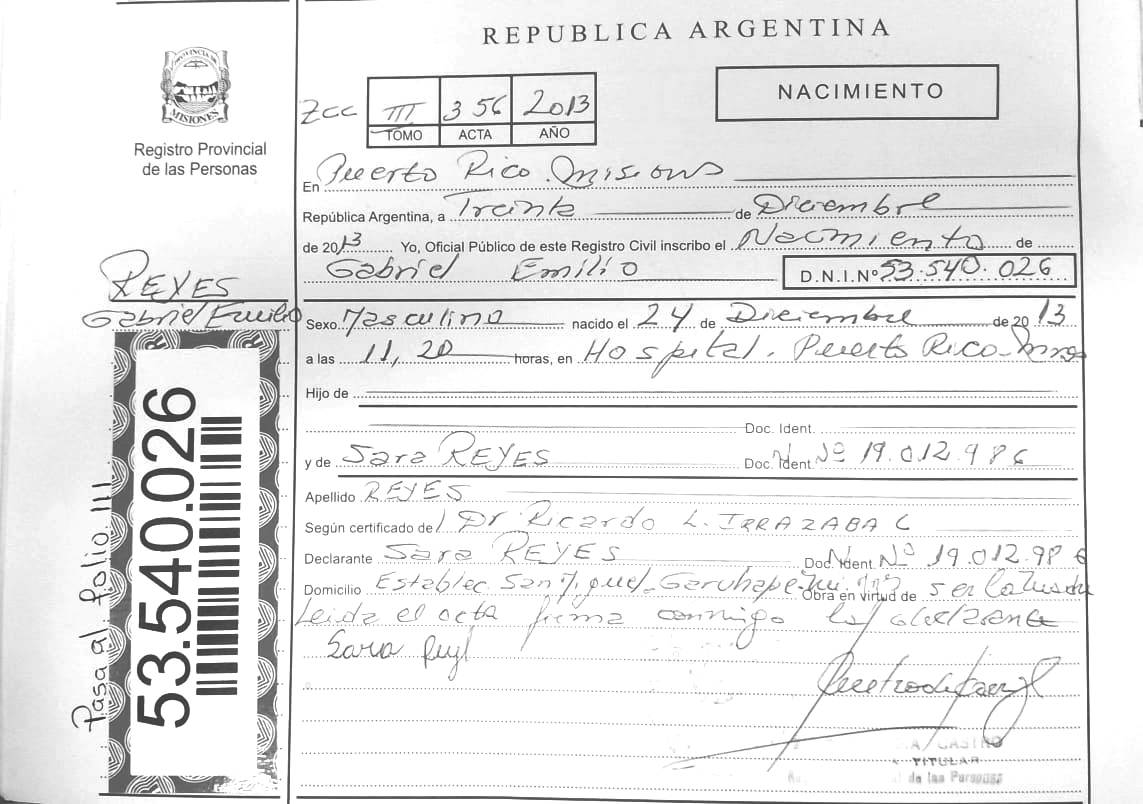 REPUBLICA ARGENTINA
PROVINCIA DE
MISIONES
Registro Provincial
de las Personas
Zcc III 356 2013
TOMO ACTA AÑO
NACIMIENTO
En Puerto Rico. Misiones
República Argentina, a Treinta de Diciembre
de 2013 Yo, Oficial Público de este Registro Civil inscribo el Nacimiento de
Gabriel Emilio D.N.I.Nº 53.540.026
REYES
Gabriel Emilio
Sexo Masculino nacido el 24 de Diciembre de 2013
a las 11,20 horas, en Hospital. Puerto Rico-Mnes
Hijo de
Doc. Ident.
y de Sara REYES Doc. Ident Nº 19.012.986
Apellido REYES
Según certificado de Dr Ricardo L. IRRAZABAL
Declarante Sara REYES Doc. Ident Nº 19.012.986
Domicilio Establec San Miguel-Garuhape Obra en virtud de
Leida el acta firma conmigo la
Sara
CASTRO
TITULAR
de las Personas
53.540.026
Pasa al folio 111